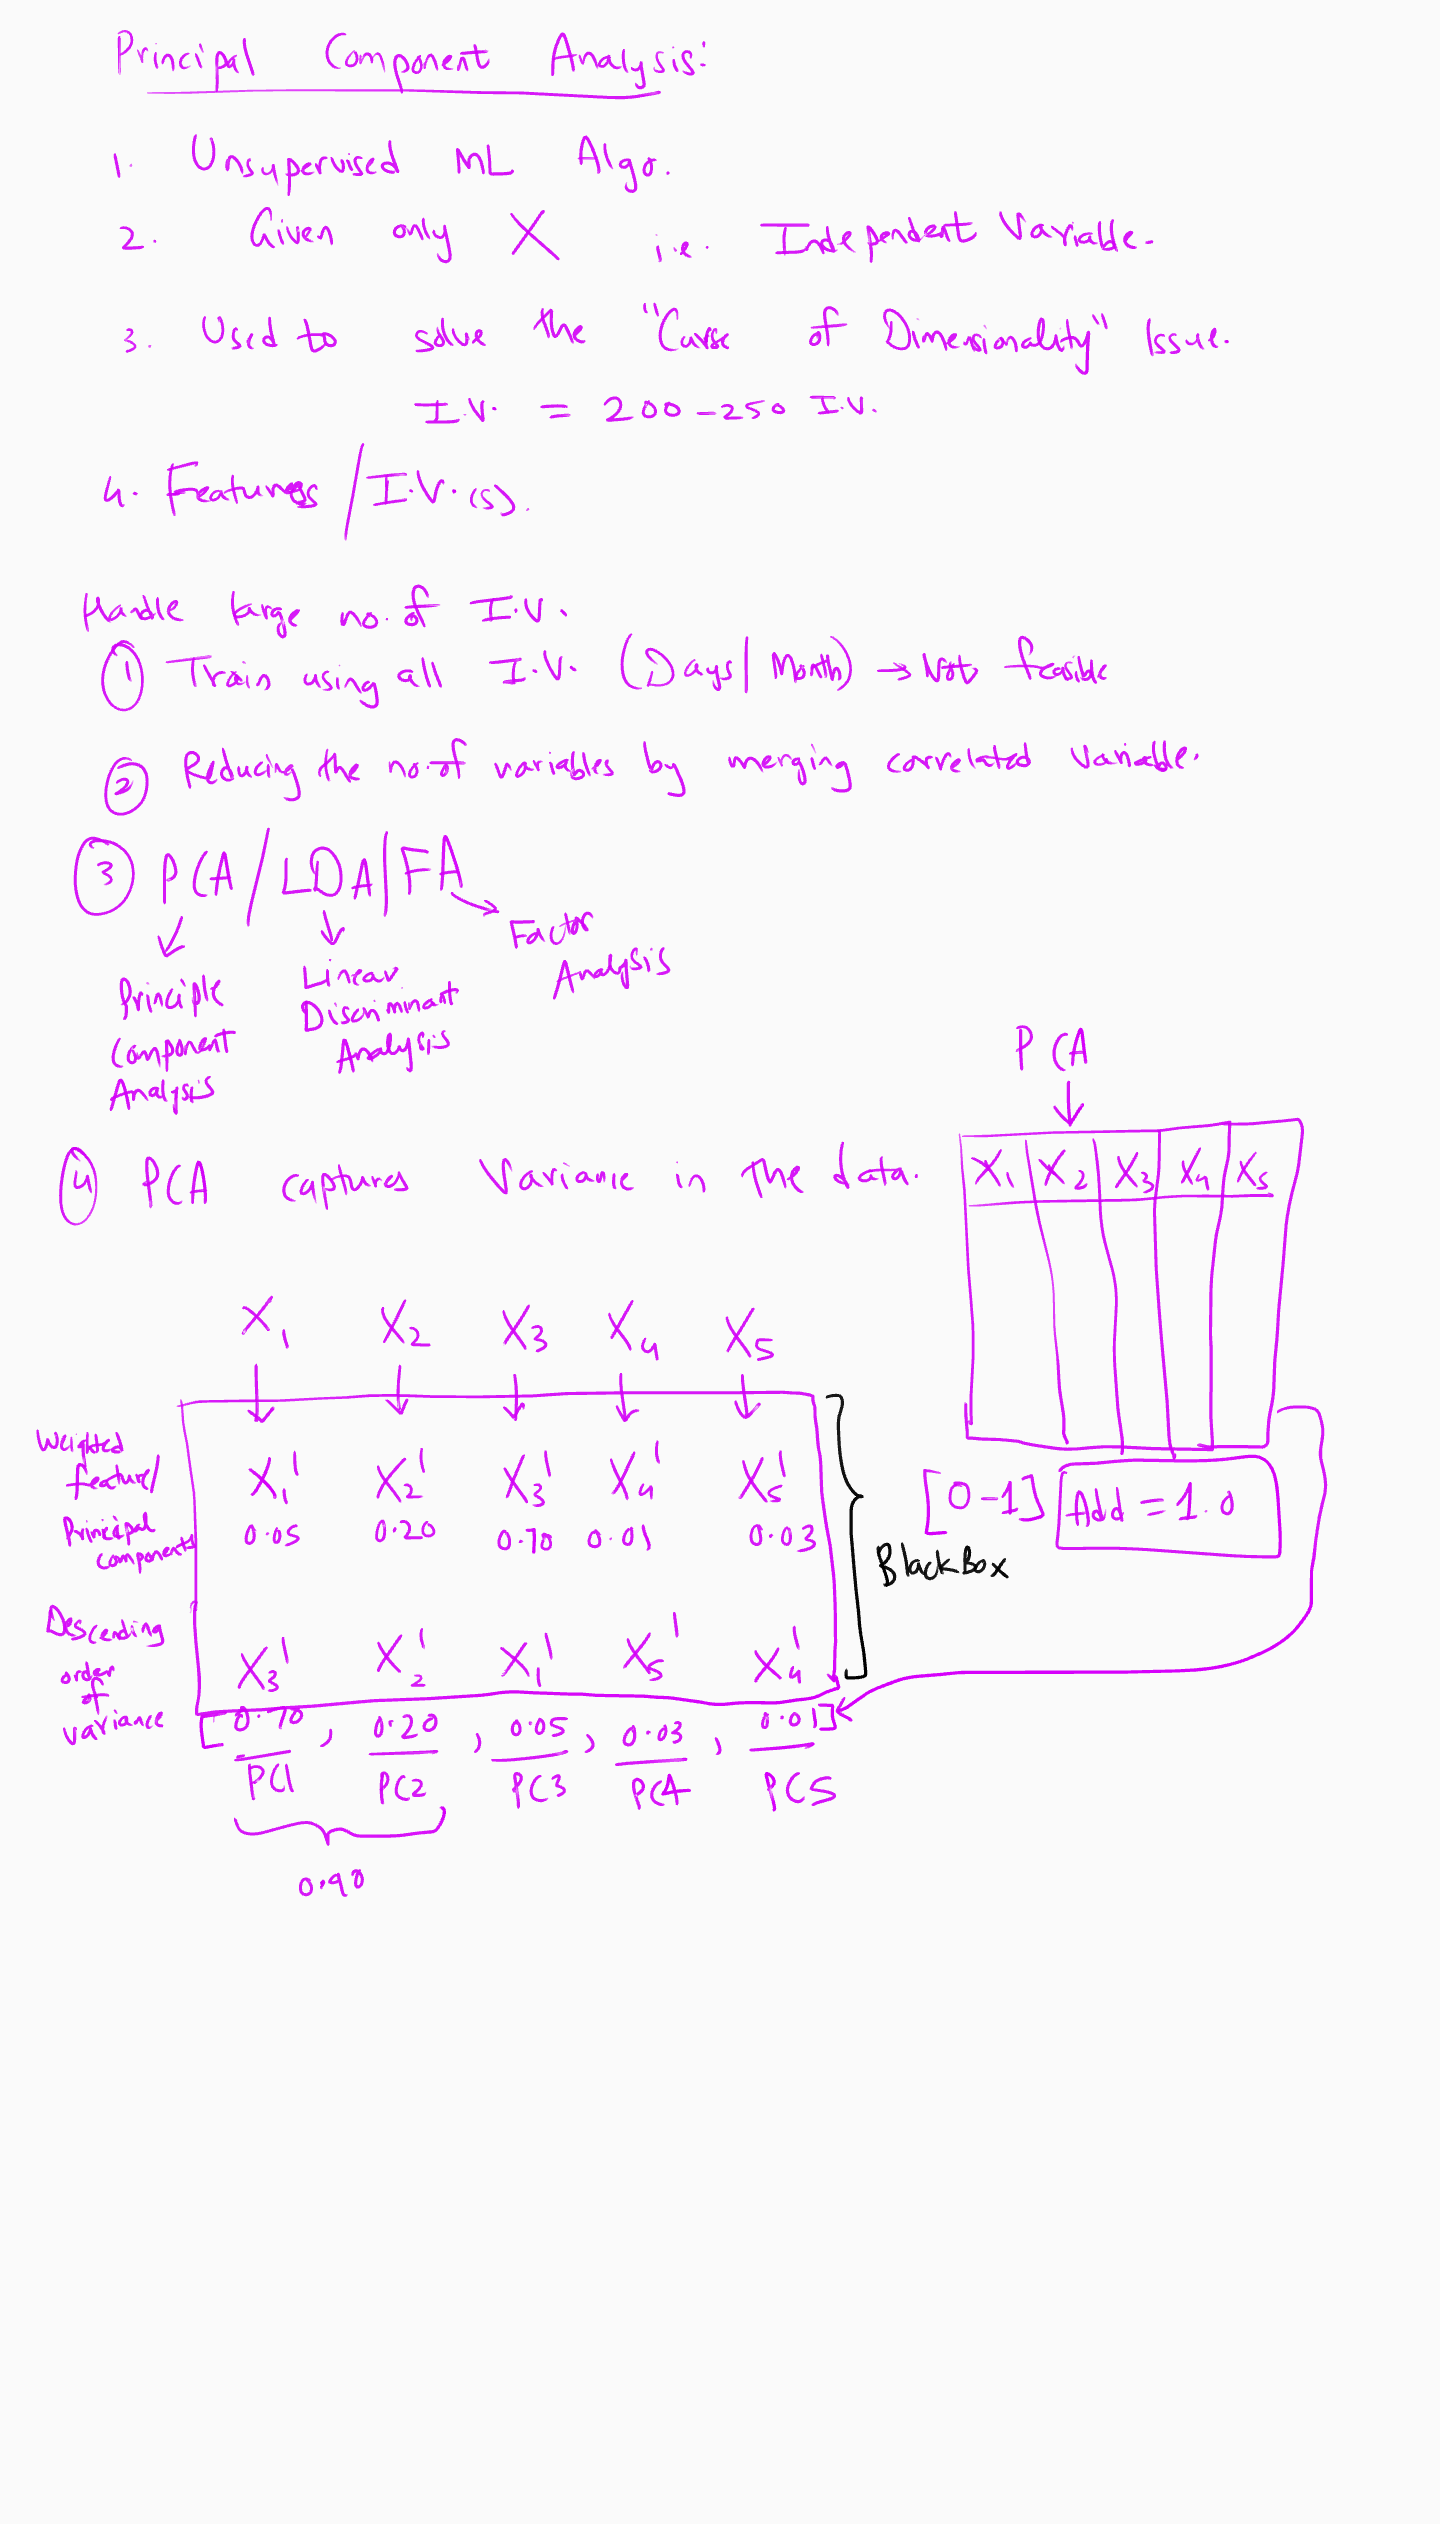 Principal Component Analysis:
1. Unsupervised ML Algo.
2. Given only X i.e. Independent Variable.
3. Used to solve the "Curse of Dimensionality" Issue.
I.V. = 200-250 I.V.
4. Features/I.V.(s).
Handle large no. of I.V.
① Train using all I.V. (Days/Month) → Not feasible
② Reducing the no. of variables by merging correlated variable.
③ PCA/LDA/FA
Principle Component Analysis
Linear Discriminant Analysis
Factor Analysis
PCA
X1 X2 X3 X4 X5
④ PCA captures Variance in the data.
X1 X2 X3 X4 X5
Weighted feature/
Principal components
X1' X2' X3' X4' X5'
0.05 0.20 0.70 0.01 0.03
[0-1] Add = 1.0
BlackBox
Descending order of variance
X3' X2' X1' X5' X4'
[0.70, 0.20, 0.05, 0.03, 0.01]
PC1 PC2 PC3 PC4 PC5
0.90